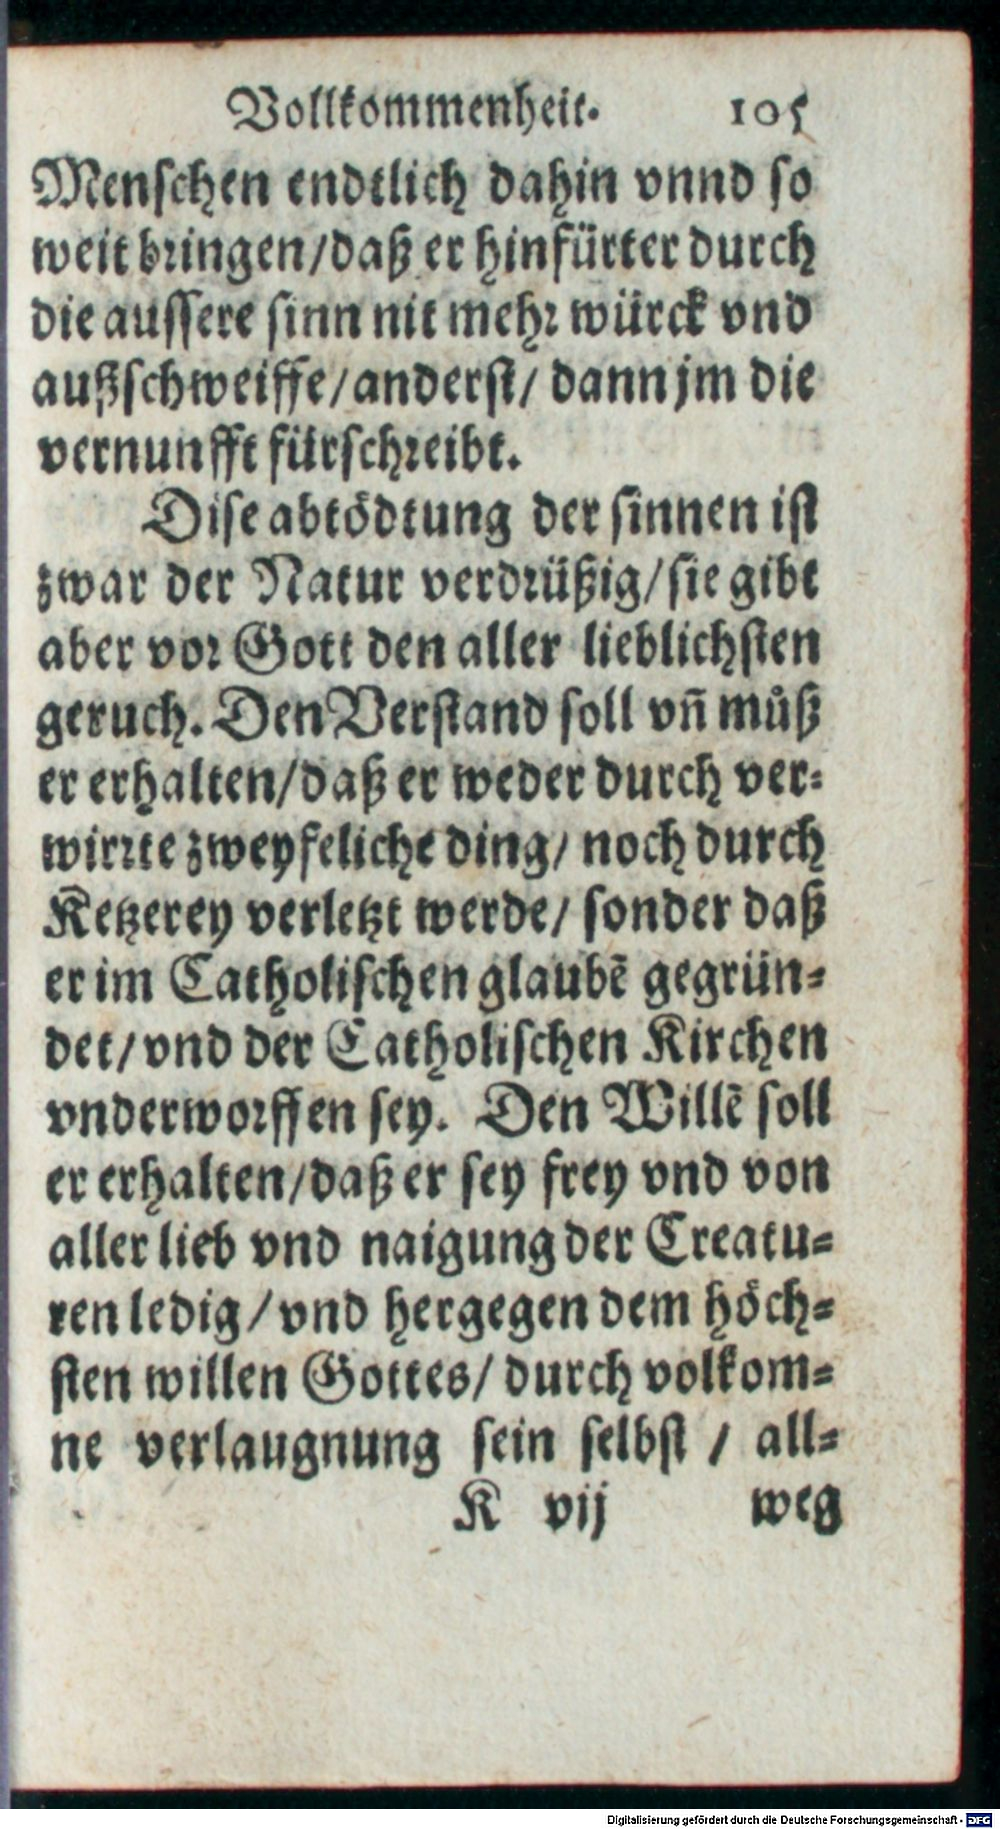 Vollkommenheit. 105
Menschen endtlich dahin vnnd so
weit bringen/daß er hinfürter durch
die aussere sinn nit mehr würck vnd
außschweiffe/anderst/ dann jm die
vernunfft fürschreibt.
Dise abtödtung der sinnen ist
zwar der Natur verdrüßig/sie gibt
aber vor Gott den aller lieblichsten
geruch. Den Verstand soll vñ můß
er erhalten/daß er weder durch ver-
wirrte zweyfeliche ding/ noch durch
Ketzerey verletzt werde/ sonder daß
er im Catholischen glaubē gegrün-
det/vnd der Catholischen Kirchen
vnderworffen sey. Den Willē soll
er erhalten/daß er sey frey vnd von
aller lieb vnd naigung der Creatu-
ren ledig/vnd hergegen dem höch-
sten willen Gottes/ durch volkom-
ne verlaugnung sein selbst / all-
K vij weg
Digitalisierung gefördert durch die Deutsche Forschungsgemeinschaft - DFG